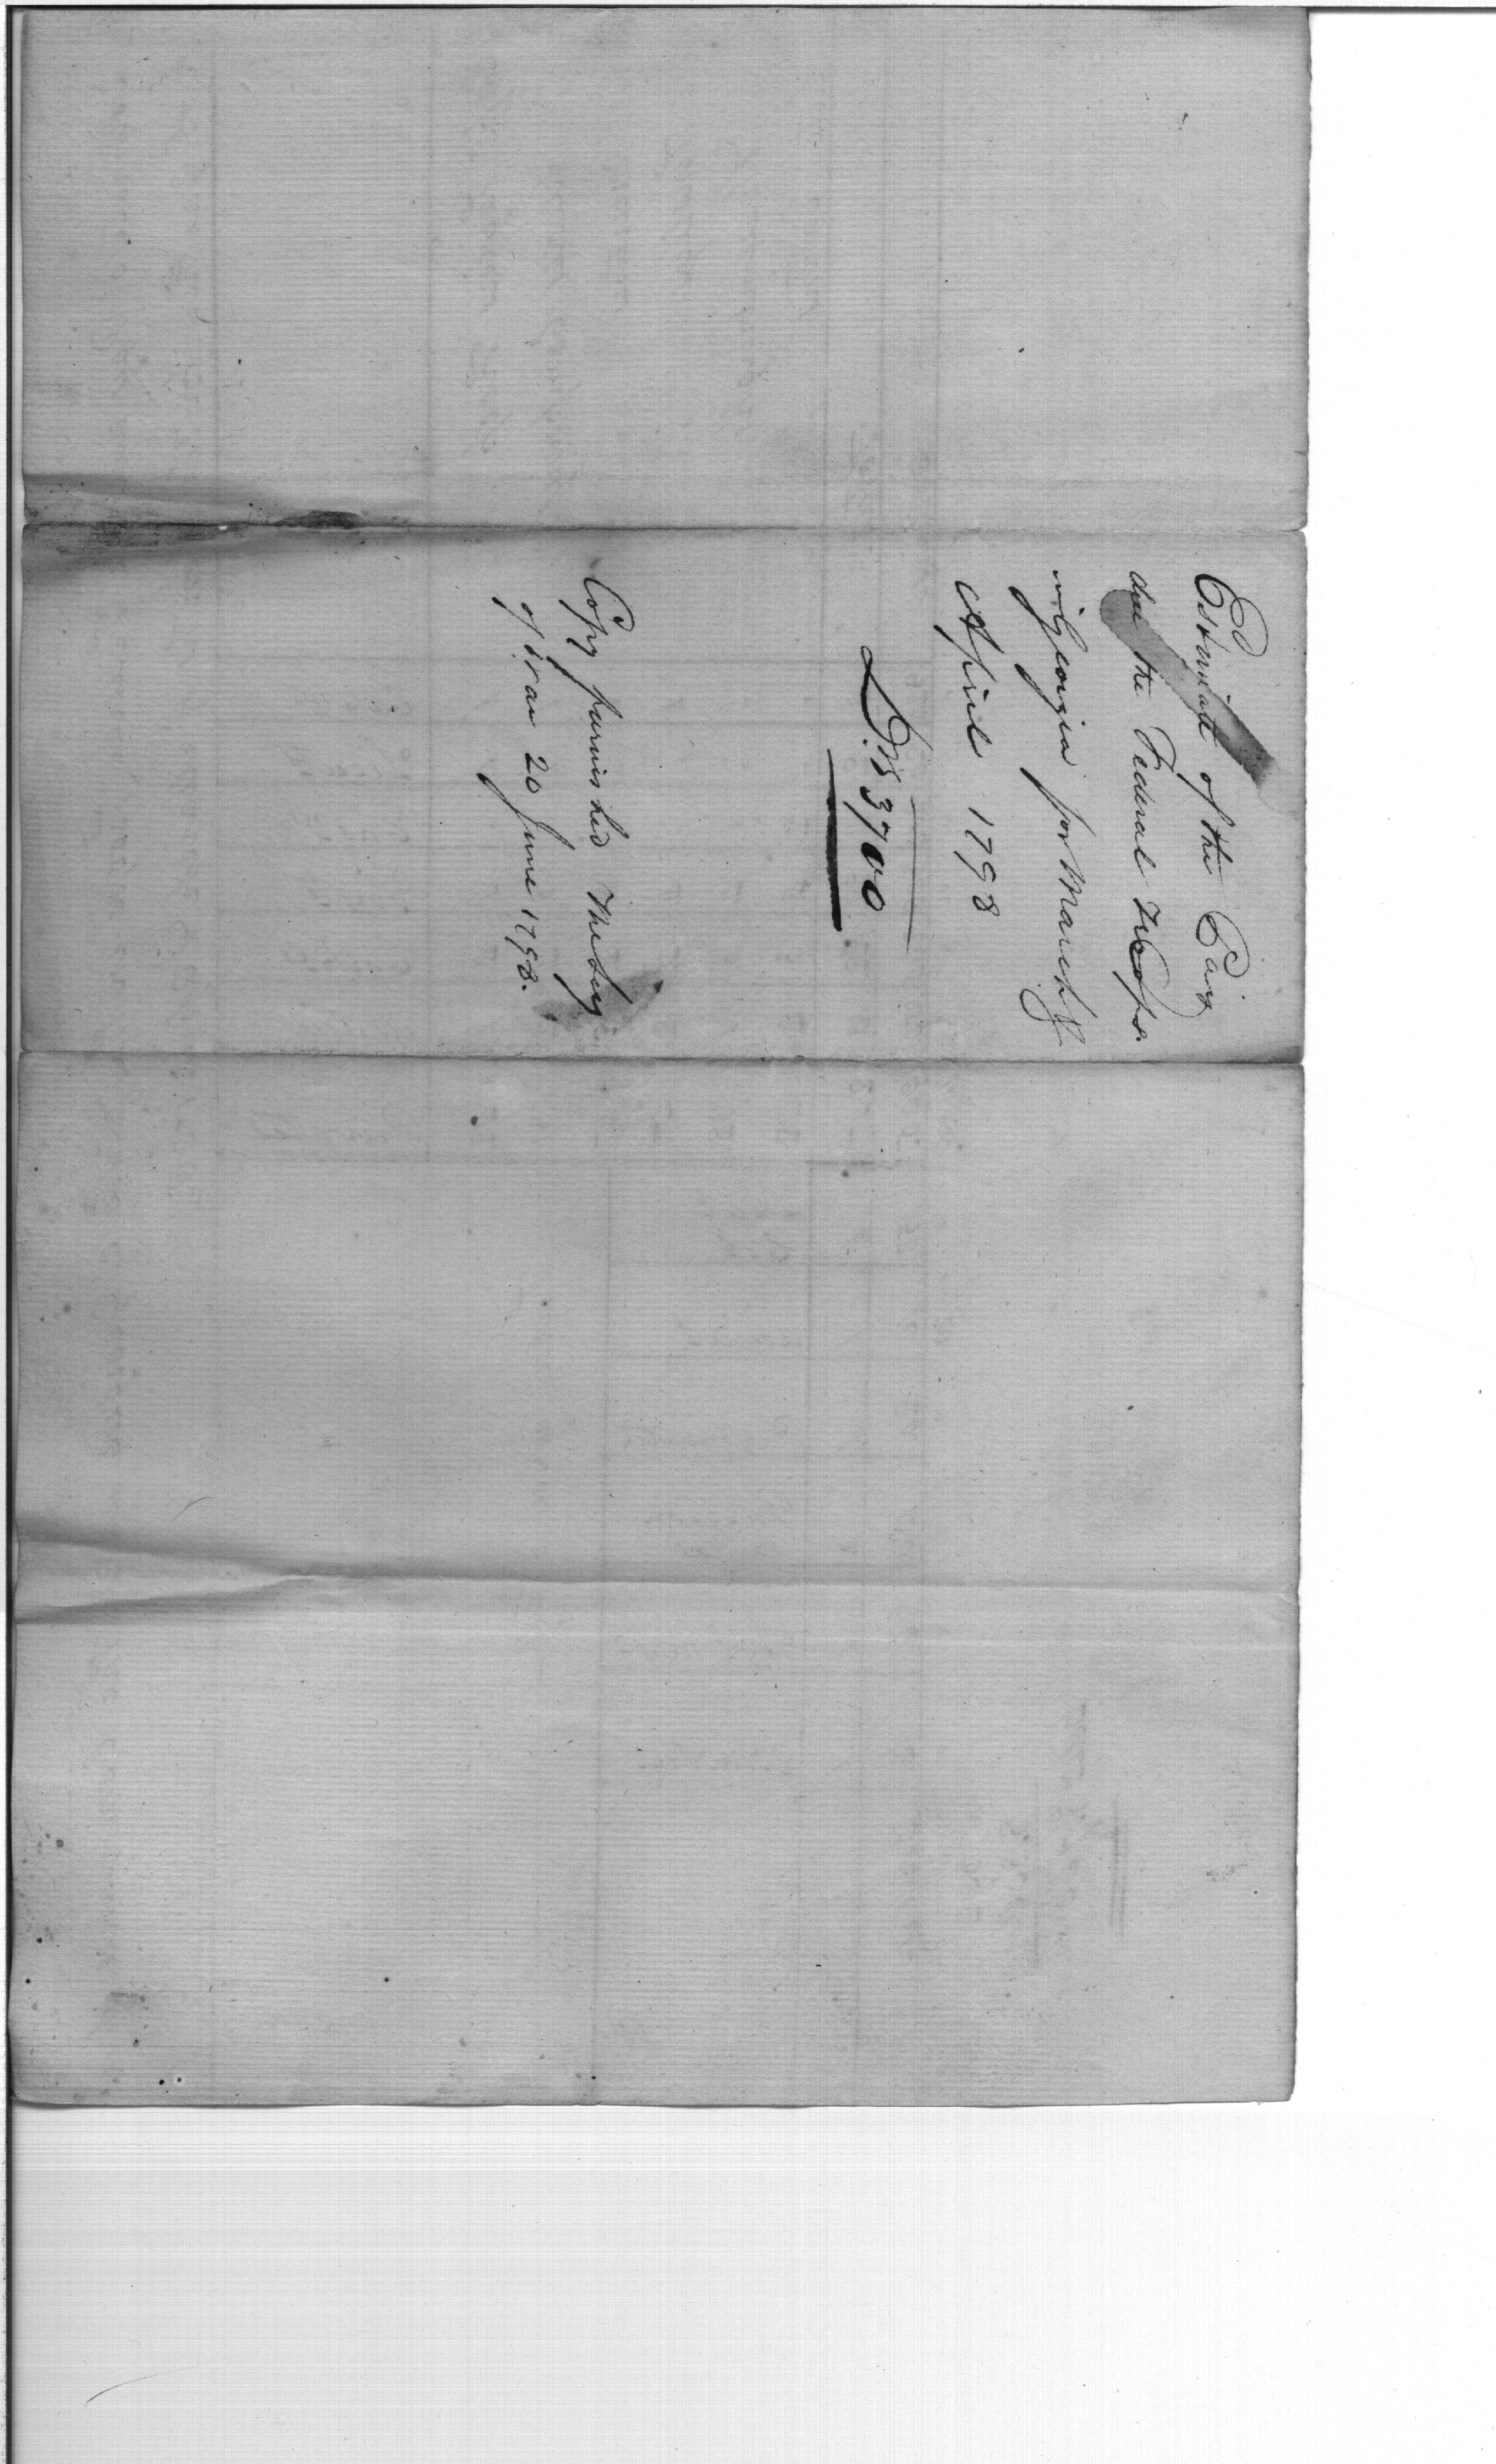 Estimate of the Pay
due the Federal Troops
in Georgia for March &
April 1798
Drs 3700
Copy furnished the Secy
of War 20 June 1798.